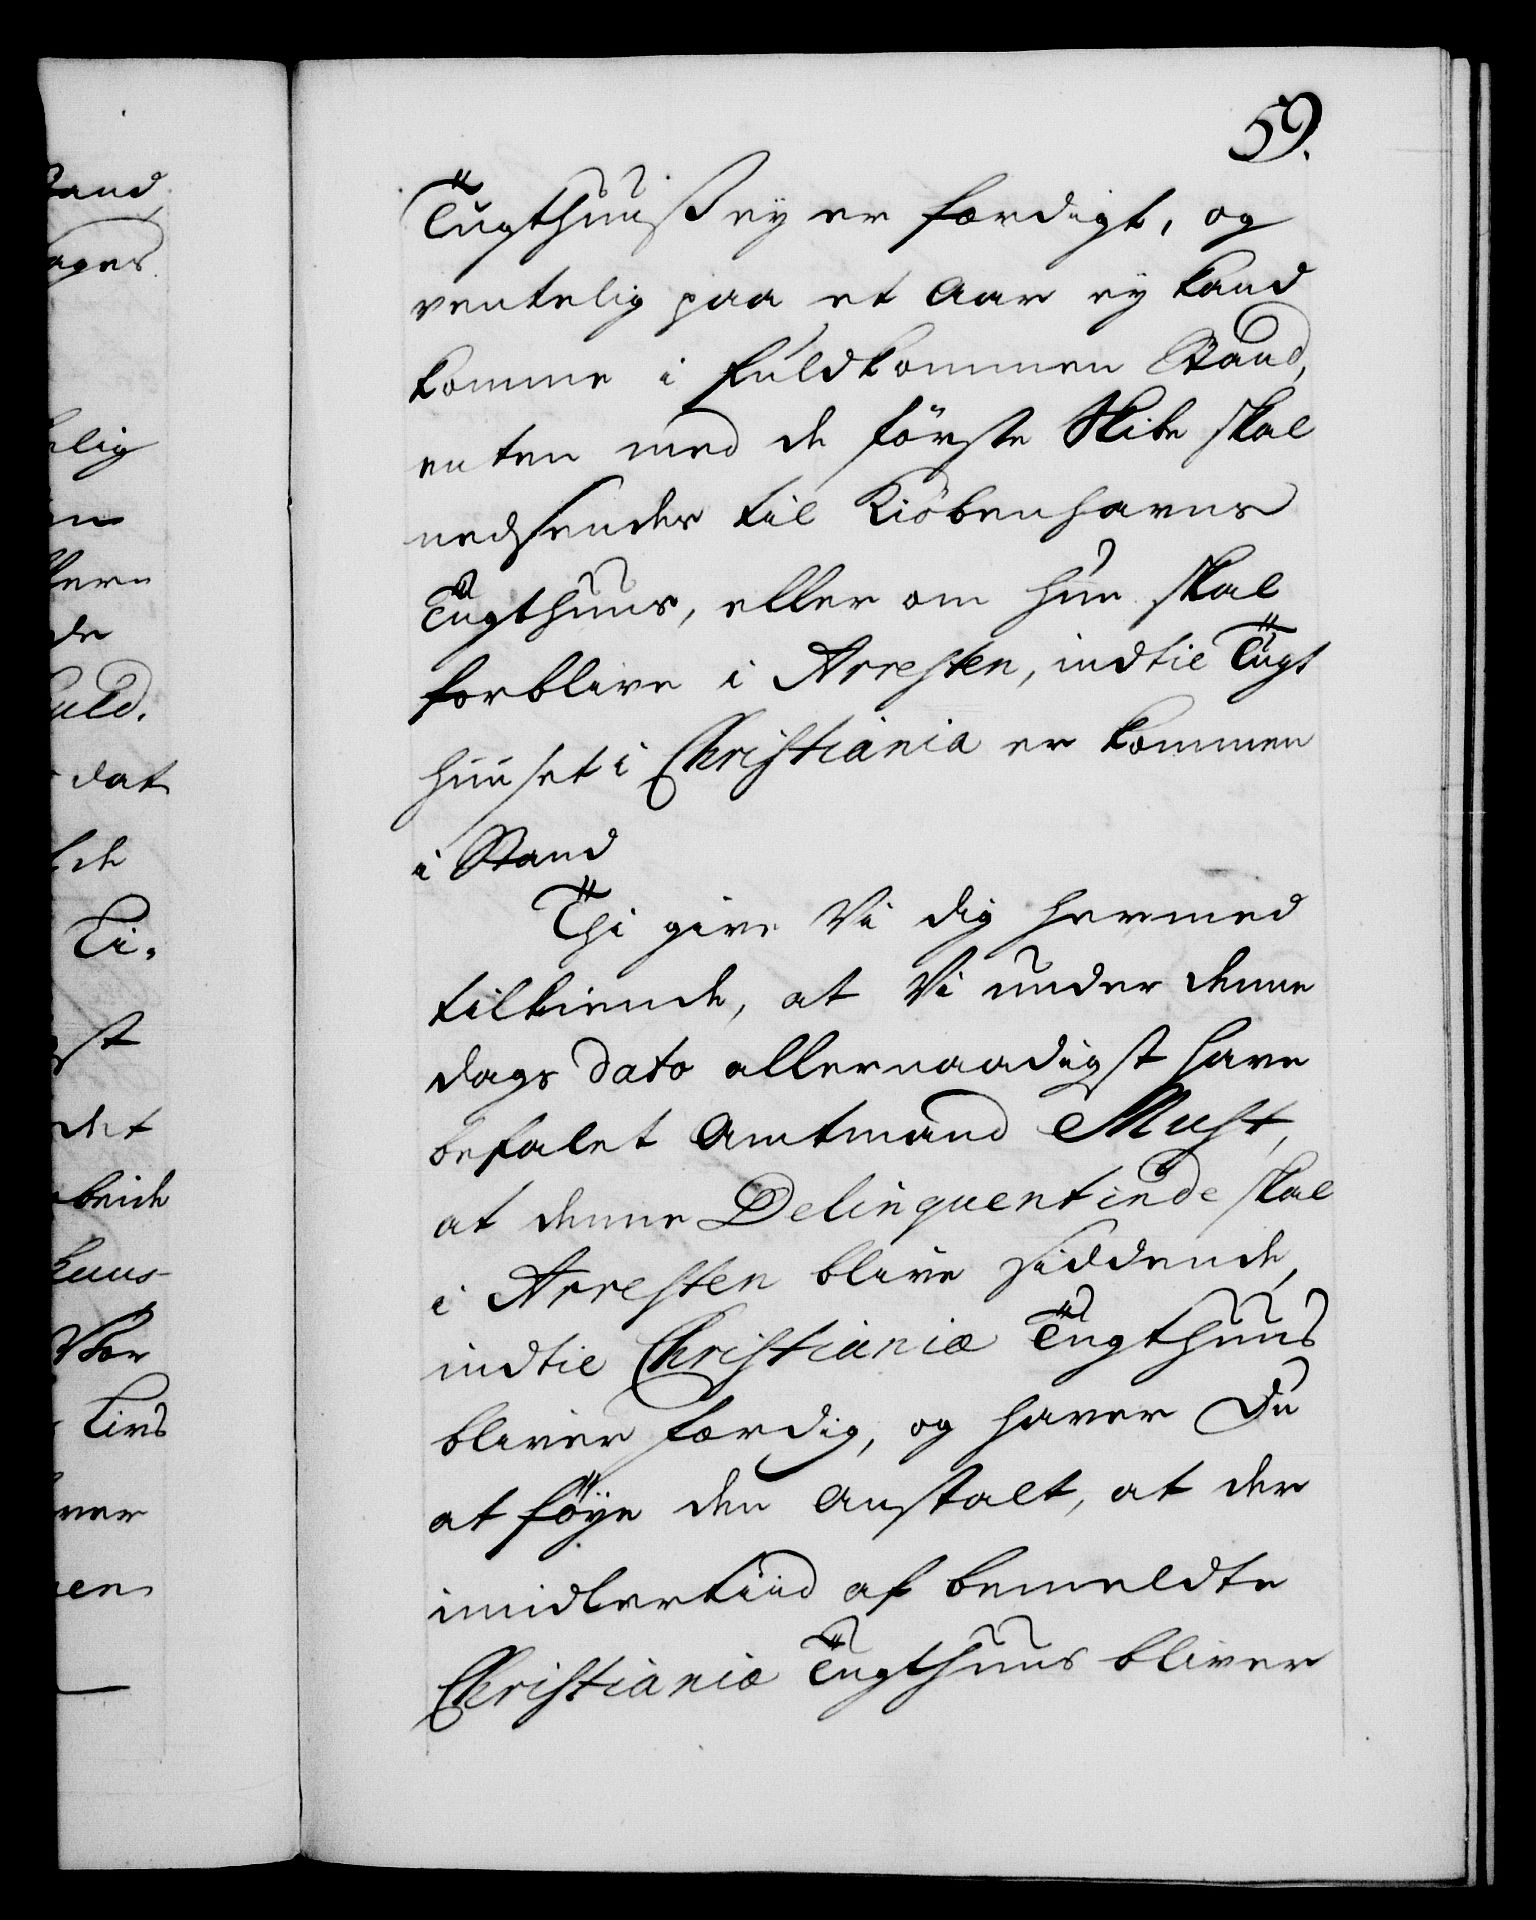 59.
Tugthuuß ey er færdigt, og
ventelig paa et Aar ey kand
komme i fuldkommen Stand,
enten med de förste Skibe skal
nedsendes til Kiöbenhavns
Tugthuus, eller om hun skal
forblive i Arresten, indtil Tugt
huuset i Christiania er kommen
i Stand
Thi give Vi dig hermed
tilkiende, at Vi under denne
dags dato allernaadigst have
befalet Amtmand Must,
at denne Delinquentinde skal
i Arresten blive siddende,
indtil Christianiæ Tugthuus
bliver færdig, og haver Du
at föye den Anstalt, at der
imidlertiid af bemeldte
Christianiæ Tugthuus bliver